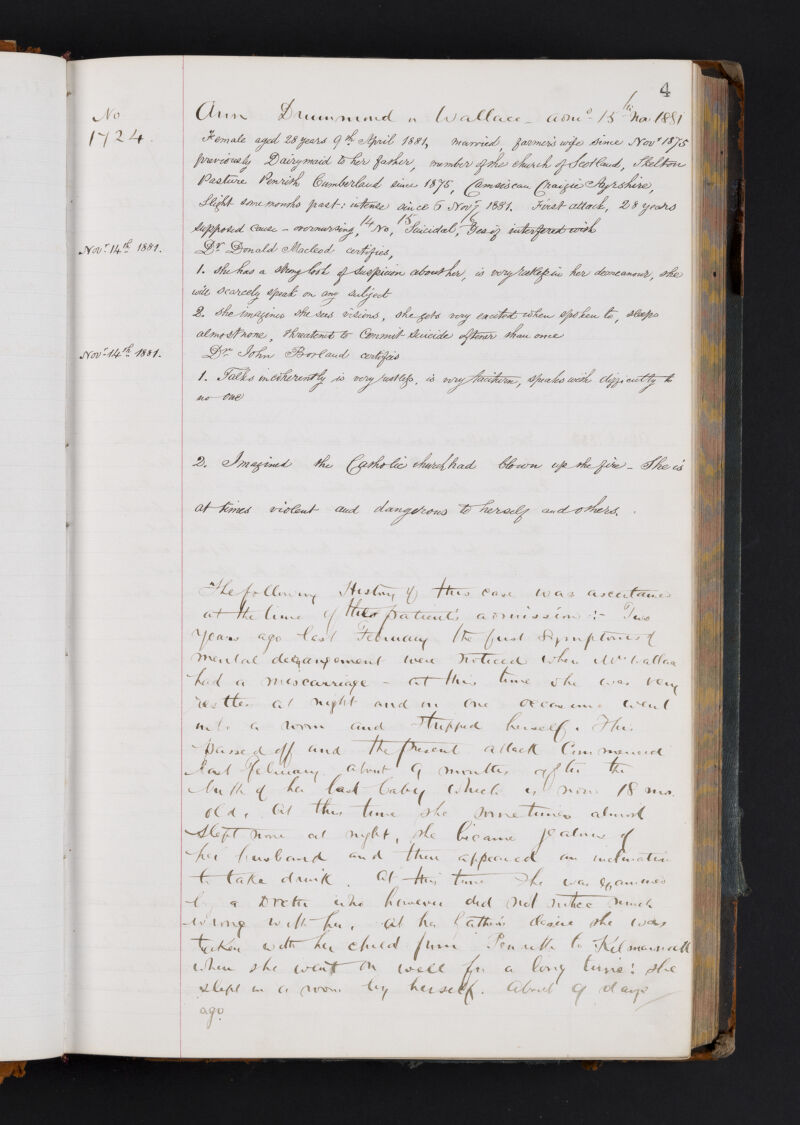 4
No
1724.
Ann Drummond or Wallace – admd 15th Nov 1881
Female aged 28 years 9th April 1881, married, farmer's wife since Novr 1875
previously Dairymaid to her father, member of the church of Scotland, Skelton
Pasture Penrith Cumberland since 1875, Camsiscan Craigie Ayrshire,
Slight some months past; intense since 5 Novr 1881. First attack, 28 years
Supposed cause – overnursing, 14 No, 15 Suicidal, Yes if interfered with
Novr 14th 1881.
Dr Donald Macleod certifies,
1. She has a strong look of suspicion about her, is very restless in her demeanour, she
will scarcely speak on any subject
2. She imagines she sees visions, she gets very excited when spoken to, sleeps
almost none, threatened to commit suicide oftener than once
Novr 14th 1881.
Dr John Borland certifies
1. Talks incoherently is very restless, is very taciturn, speaks with difficulty to
no one
2. Imagined the Catholic church had blown up the fire – She is
at times violent and dangerous to herself and others.
The following History of this case was ascertained
at the time of the patient's admission :- Two
years ago last February the first symptoms of
mental derangement were noticed when Mrs Wallace
had a miscarriage – at this time she was very
restless at night and on one occasion went
into a room and stripped herself. This
passed off and the present attack commenced
last February about 9 months after the
birth of her last baby which is now 18 mos.
old. At this time she sometimes almost
slept none at night, she became jealous of
her husband and then appeared an inclination
to take drink. At this time she was examined
by a Doctor who however did not notice much
wrong with her. At her father's desire she was
taken with her child from Penrith to Kilmarnock
when she went on well for a long time: she
slept in a room by herself. About 9 days
ago